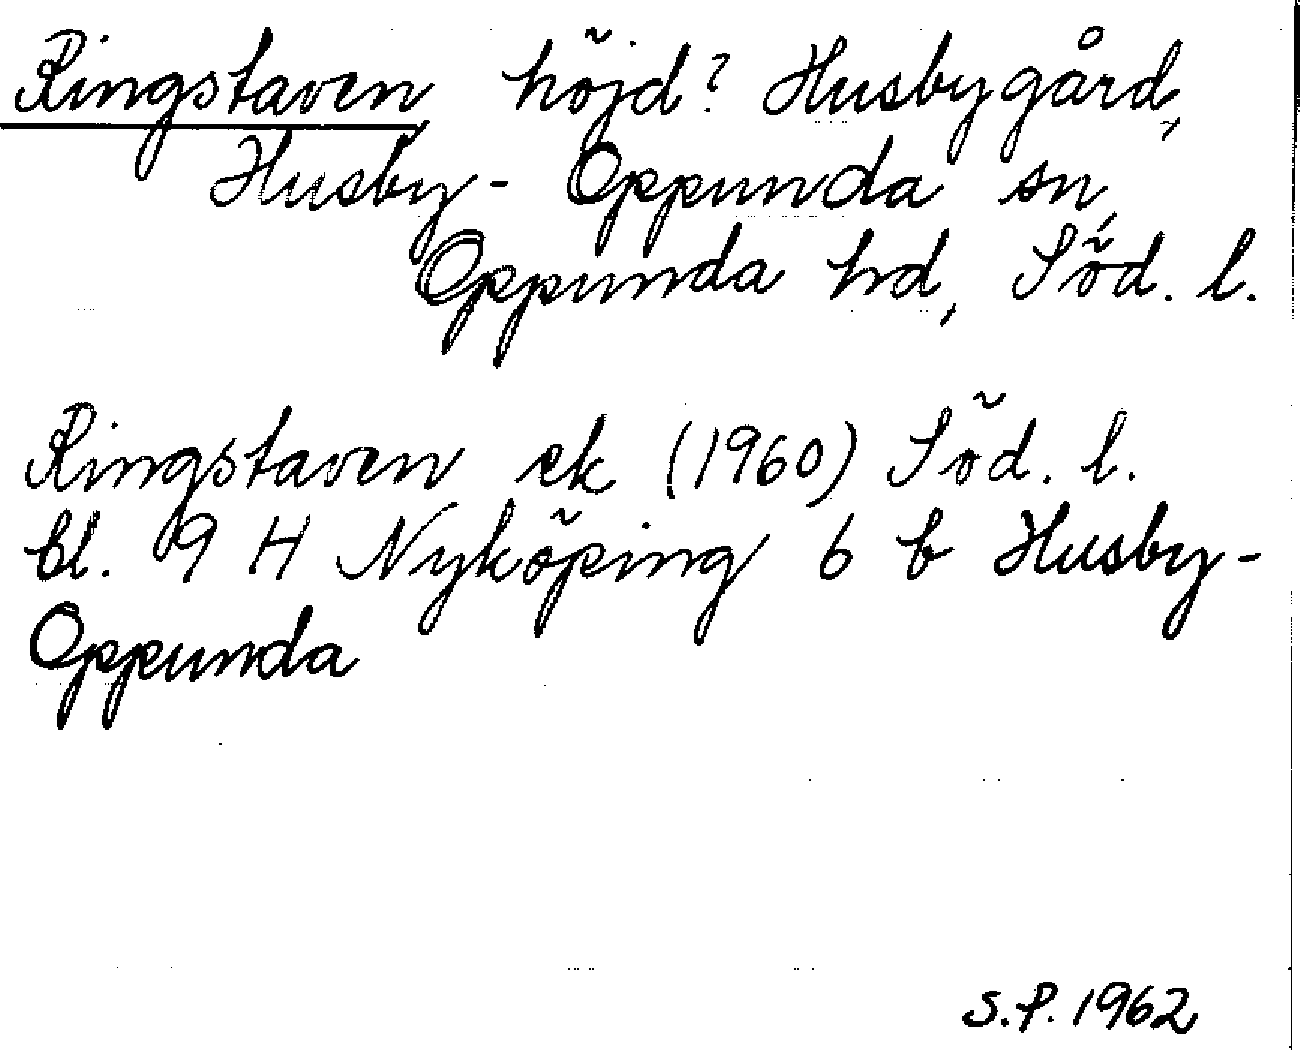 Ringstaven höjd? Husbygård,
Husby-Oppunda sn,
Oppunda hd, Söd. l.
Ringstaven ek (1960) Söd. l.
bl. 9 H Nyköping 6 b Husby-
Oppunda
S.P. 1962